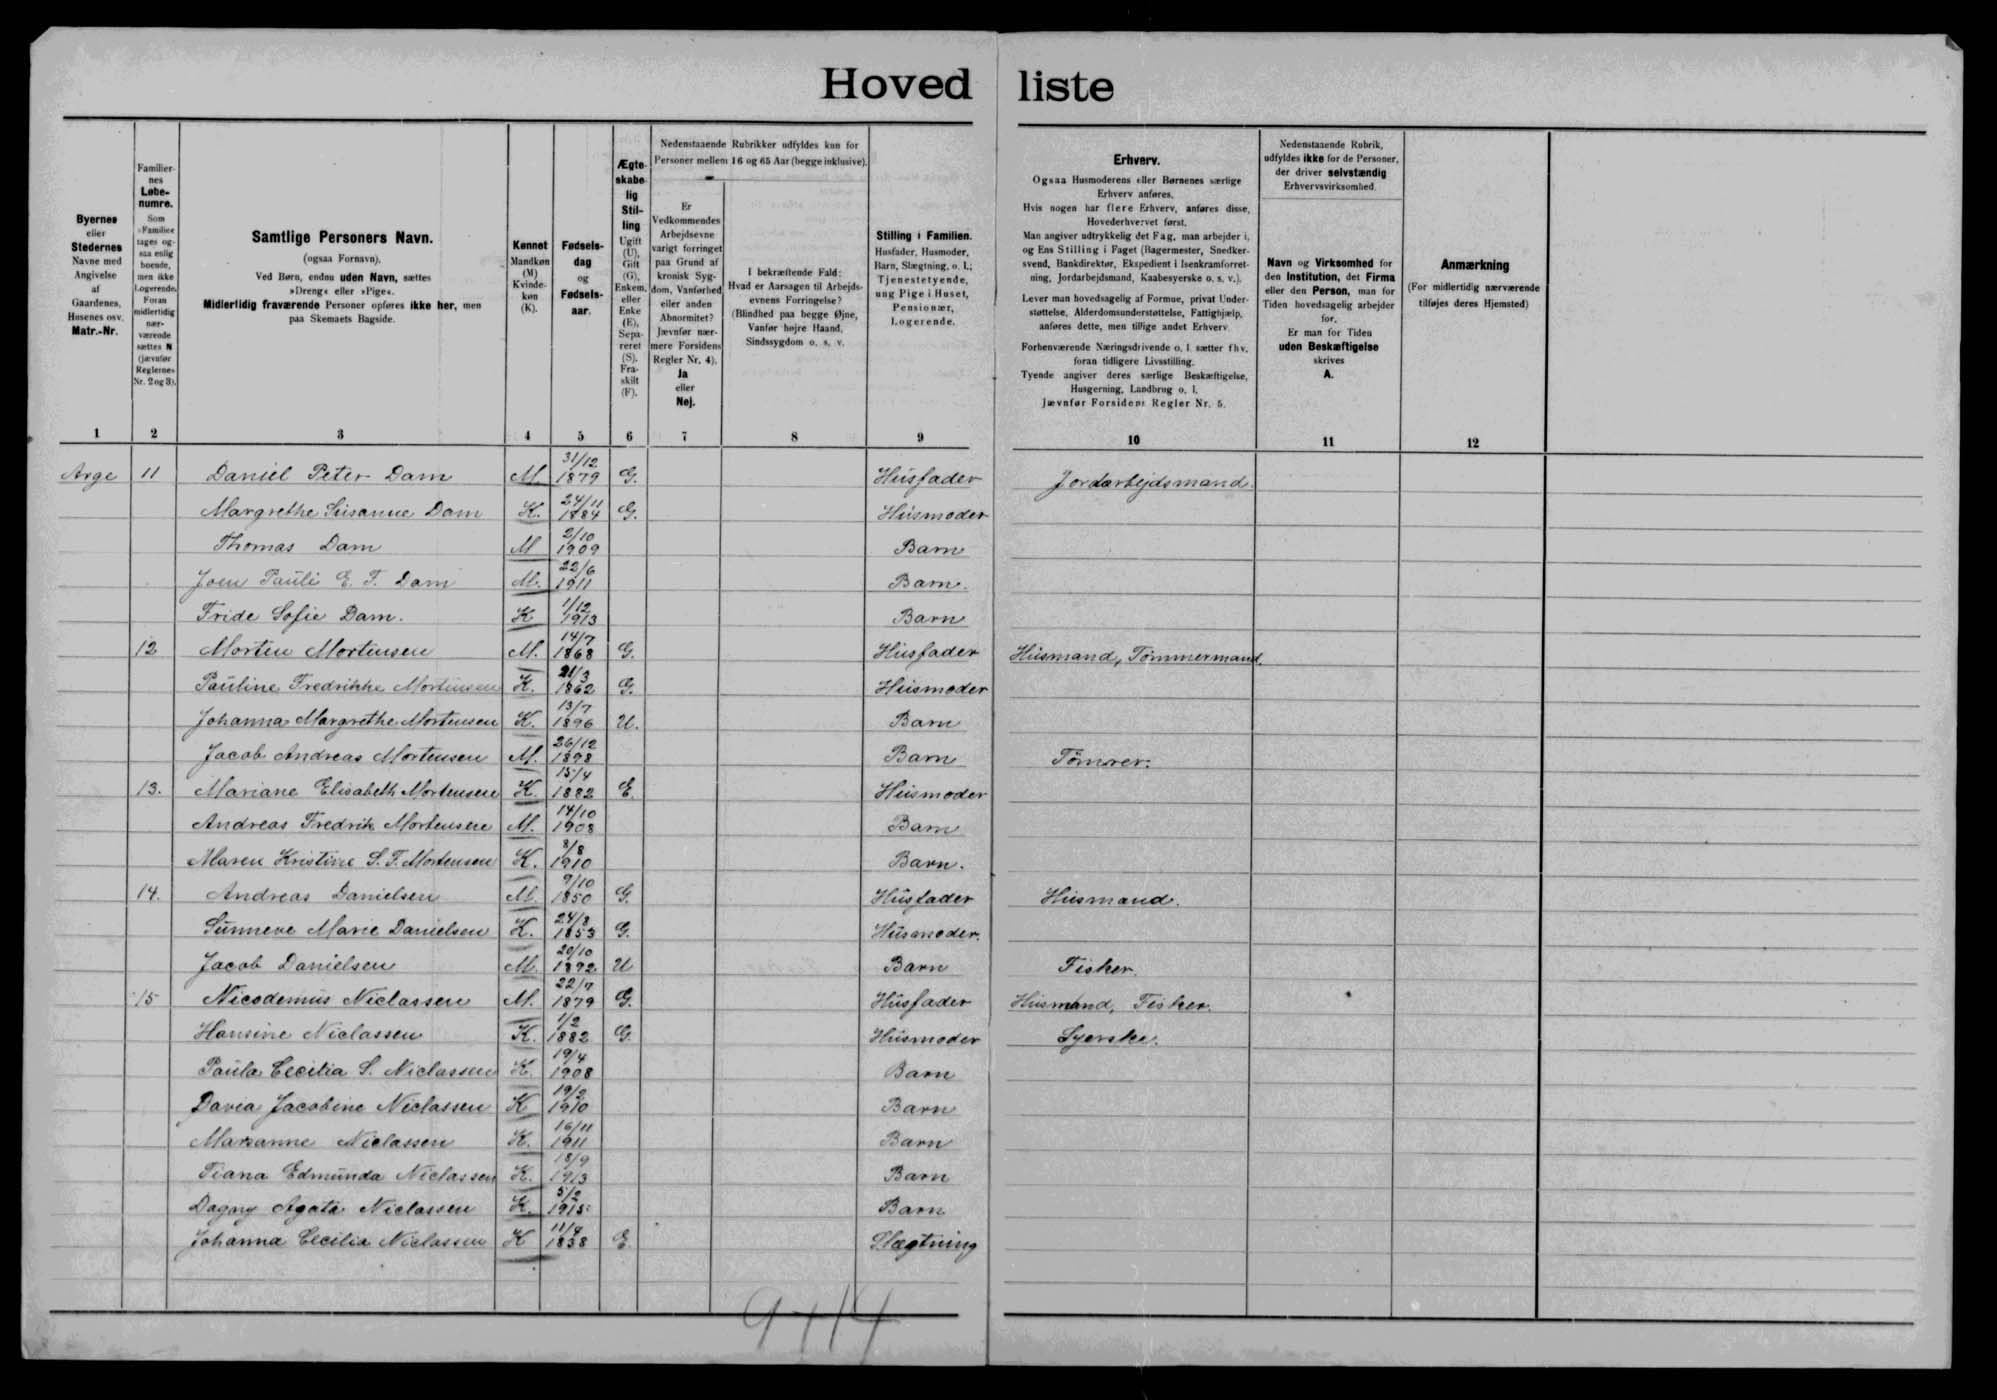 Hoved liste
Byernes
eller
Stedernes
Navne med
Angivelse
af
Gaardenes,
Husenes osv.
Matr.-Nr.
Familier-
nes
Løbe-
numre.
Som
»Familie«
tages og-
saa enlig
boende,
men ikke
Logerende.
Foran
midlertidig
nær-
værende
sættes N
(jævnfør
Reglernes
Nr. 2 og 3).
Samtlige Personers Navn.
(ogsaa Fornavn).
Ved Børn, endnu uden Navn, sættes
»Dreng« eller »Pige«.
Midlertidig fraværende Personer opføres ikke her, men
paa Skemaets Bagside.
Kønnet
Mandkøn
(M)
Kvinde-
køn
(K).
Fødsels-
dag
og
Fødsels-
aar.
Ægte-
skabe-
lig
Stil-
ling
Ugift
(U),
Gift
(G),
Enkem.
eller
Enke
(E),
Sepa-
reret
(S).
Fra-
skilt
(F).
Nedenstaaende Rubrikker udfyldes kun for
Personer mellem 16 og 65 Aar (begge inklusive).
Er
Vedkommendes
Arbejdsevne
varigt forringet
paa Grund af
kronisk Syg-
dom, Vanførhed
eiler anden
Abnormitet?
Jævnfør nær-
mere Forsidens
Regler Nr. 4).
Ja
eller
Nej.
I bekræftende Fald:
Hvad er Aarsagen til Arbejds-
evnens Forringelse?
(Blindhed paa begge Øjne,
Vanfør højre Haand,
Sindssygdom o. s. v.
Stilling i Familien.
Husfader, Husmoder,
Barn, Slægtning, o. l.;
Tjenestetyende,
ung Pige i Huset,
Pensionær,
Logerende.
Erhverv.
Ogsaa Husmoderens eller Børnenes særlige
Erhverv anføres.
Hvis nogen har flere Erhverv, anføres disse,
Hovederhvervet først.
Man angiver udtrykkelig det Fag, man arbejder i,
og Ens Stilling i Faget (Bagermester, Snedker-
svend, Bankdirektør, Ekspedient i Isenkramforret-
ning, Jordarbejdsmand, Kaabesyerske o. s. v.).
Lever man hovedsagelig af Formue, privat Under-
støttelse, Alderdomsunderstøttelse, Fattighjælp,
anføres dette, men tillige andet Erhverv.
Forhenværende Næringsdrivende o. l. sætter fhv.
foran tidligere Livsstilling.
Tyende angiver deres særlige Beskæftigelse,
Husgerning, Landbrug o. l.
Jævnfør Forsidens Regler Nr. 5.
Nedenstaaende Rubrik,
udfyldes ikke for de Personer,
der driver selvstændig
Erhvervsvirksomhed.
Navn og Virksomhed for
den Institution, det Firma
eller den Person, man for
Tiden hovedsagelig arbejder
for.
Er man for Tiden
uden Beskæftigelse
skrives
A.
Anmærkning
(For midlertidig nærværende
tilføjes deres Hjemsted)
1 2 3 4 5 6 7 8 9 10 11 12
Arge 11 Daniel Peter Dam M. 31/12 1879 G. Husfader Jordarbejdsmand.
Margrethe Susanne Dam K. 24/11 1884 G. Husmoder
Thomas Dam M 2/10 1909 Barn
Joen Pauli E. F. Dam M. 22/6 1911 Barn.
Fride Sofie Dam. K 1/12 1913 Barn
12 Morten Mortensen M. 14/7 1868 G. Husfader Husmand, Tømmermand.
Pauline Fredrikke Mortensen K. 21/3 1862 G. Husmoder
Johanna Margrethe Mortensen K. 13/7 1896 U. Barn
Jacob Andreas Mortensen M. 26/12 1898 Barn Tømrer.
13. Mariane Elisabeth Mortensen K. 15/4 1882 E. Husmoder
Andreas Fredrik Mortensen M. 14/10 1908 Barn
Maren Kristine S. F. Mortensen K. 8/8 1910 Barn.
14. Andreas Danielsen M. 9/10 1850 G. Husfader Husmand.
Sunneve Marie Danielsen K. 24/8 1853 G. Husmoder.
Jacob Danielsen M. 20/10 1892 U Barn Fisker.
15 Nicodemus Niclassen M. 22/7 1879 G. Husfader Husmand, Fisker.
Hansine Niclassen K. 1/2 1882 G. Husmoder Syerske.
Paula Cecilia S. Niclassen K. 19/4 1908 Barn
Davia Jacobine Niclassen K 19/2 1910 Barn
Marianne Niclassen K. 16/11 1911 Barn
Tiana Edmunda Niclassen K. 18/9 1913 Barn
Dagny Agata Niclassen K. 5/2 1915 Barn
Johanna Cecilia Niclassen K 11/4 1838 E. Slægtning
9+14